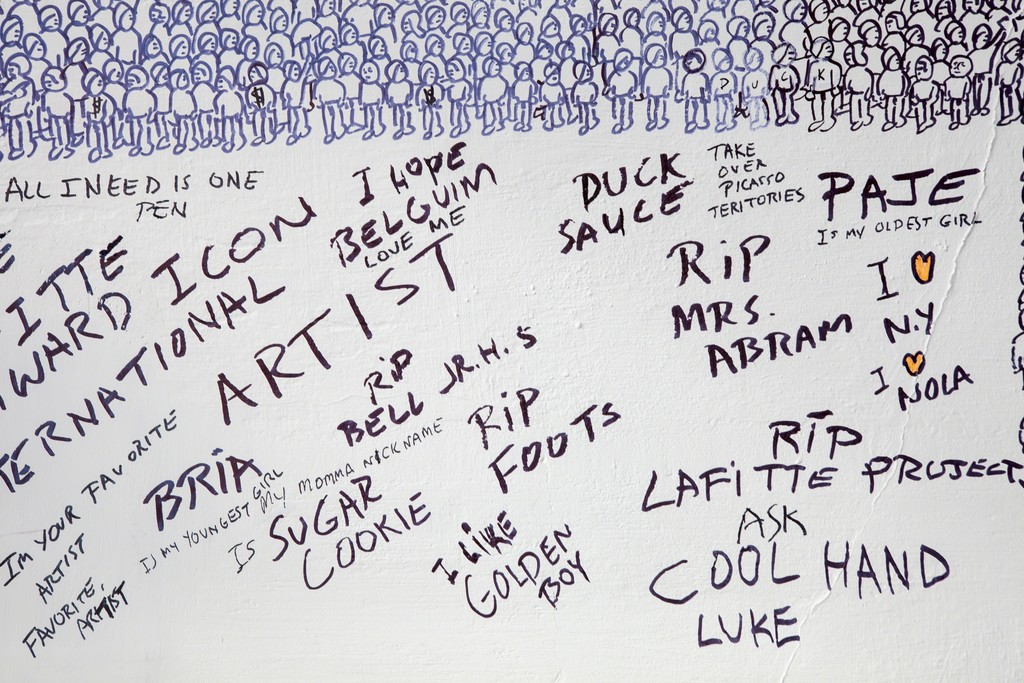 ALL I NEED IS ONE
PEN
ITTE
WARD ICON
TERNATIONAL
ARTIST
I HOPE
BELGUIM
LOVE ME
DUCK
SAUCE
TAKE
OVER
PICASSO
TERITORIES
PAJE
IS MY OLDEST GIRL
RIP
MRS.
ABRAM
I
N.Y
I
NOLA
RIP
BELL JR.H.S
RIP
FOOTS
I'M YOUR FAVORITE
ARTIST
FAVORITE,
ARTIST
BRIA
IS MY YOUNGEST GIRL
MY MOMMA NICKNAME
IS SUGAR
COOKIE
I LIKE
GOLDEN
BOY
RIP
LAFITTE PROJECTS
ASK
COOL HAND
LUKE